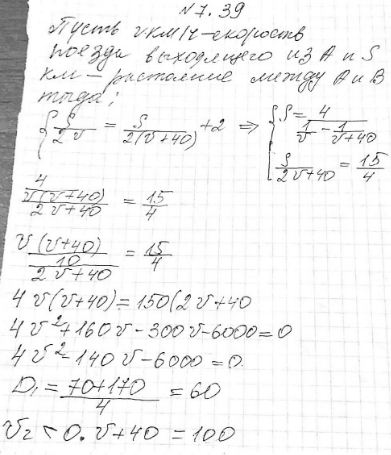 №7.39
Пусть v км/ч-скорость
поезда выходящего из A и S
км - растоение между A и B
тогда:
{ S/2v = S/2(v+40) + 2 ⇒ { S = 4/(1/v - 1/(v+40))
S/(2v+40) = 15/4
4/(v(v+40))/(2v+40) = 15/4
(v(v+40)/10)/(2v+40) = 15/4
4v(v+40) = 150(2v+40
4v²+160v-300v-6000=0
4v²-140v-6000=0
D₁ = (70+170)/4 = 60
v₂<0. v+40=100